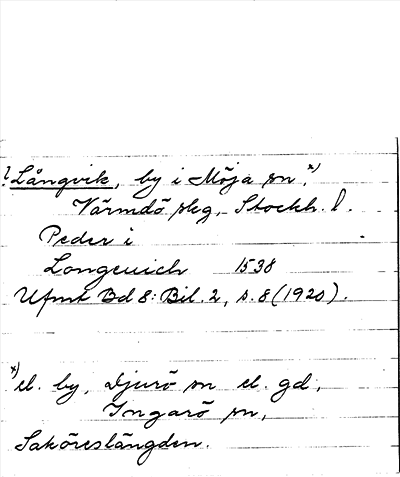 ? Långvik, by i Möja sn, x)
Värmdö skg, Stockh. l.
Peder i
Longeuich 1538
Ufmt Bd 8: Bil. 2, s. 8 (1920).
x) el. by, Djurö sn el. gd,
Ingarö sn,
Saköreslängden.